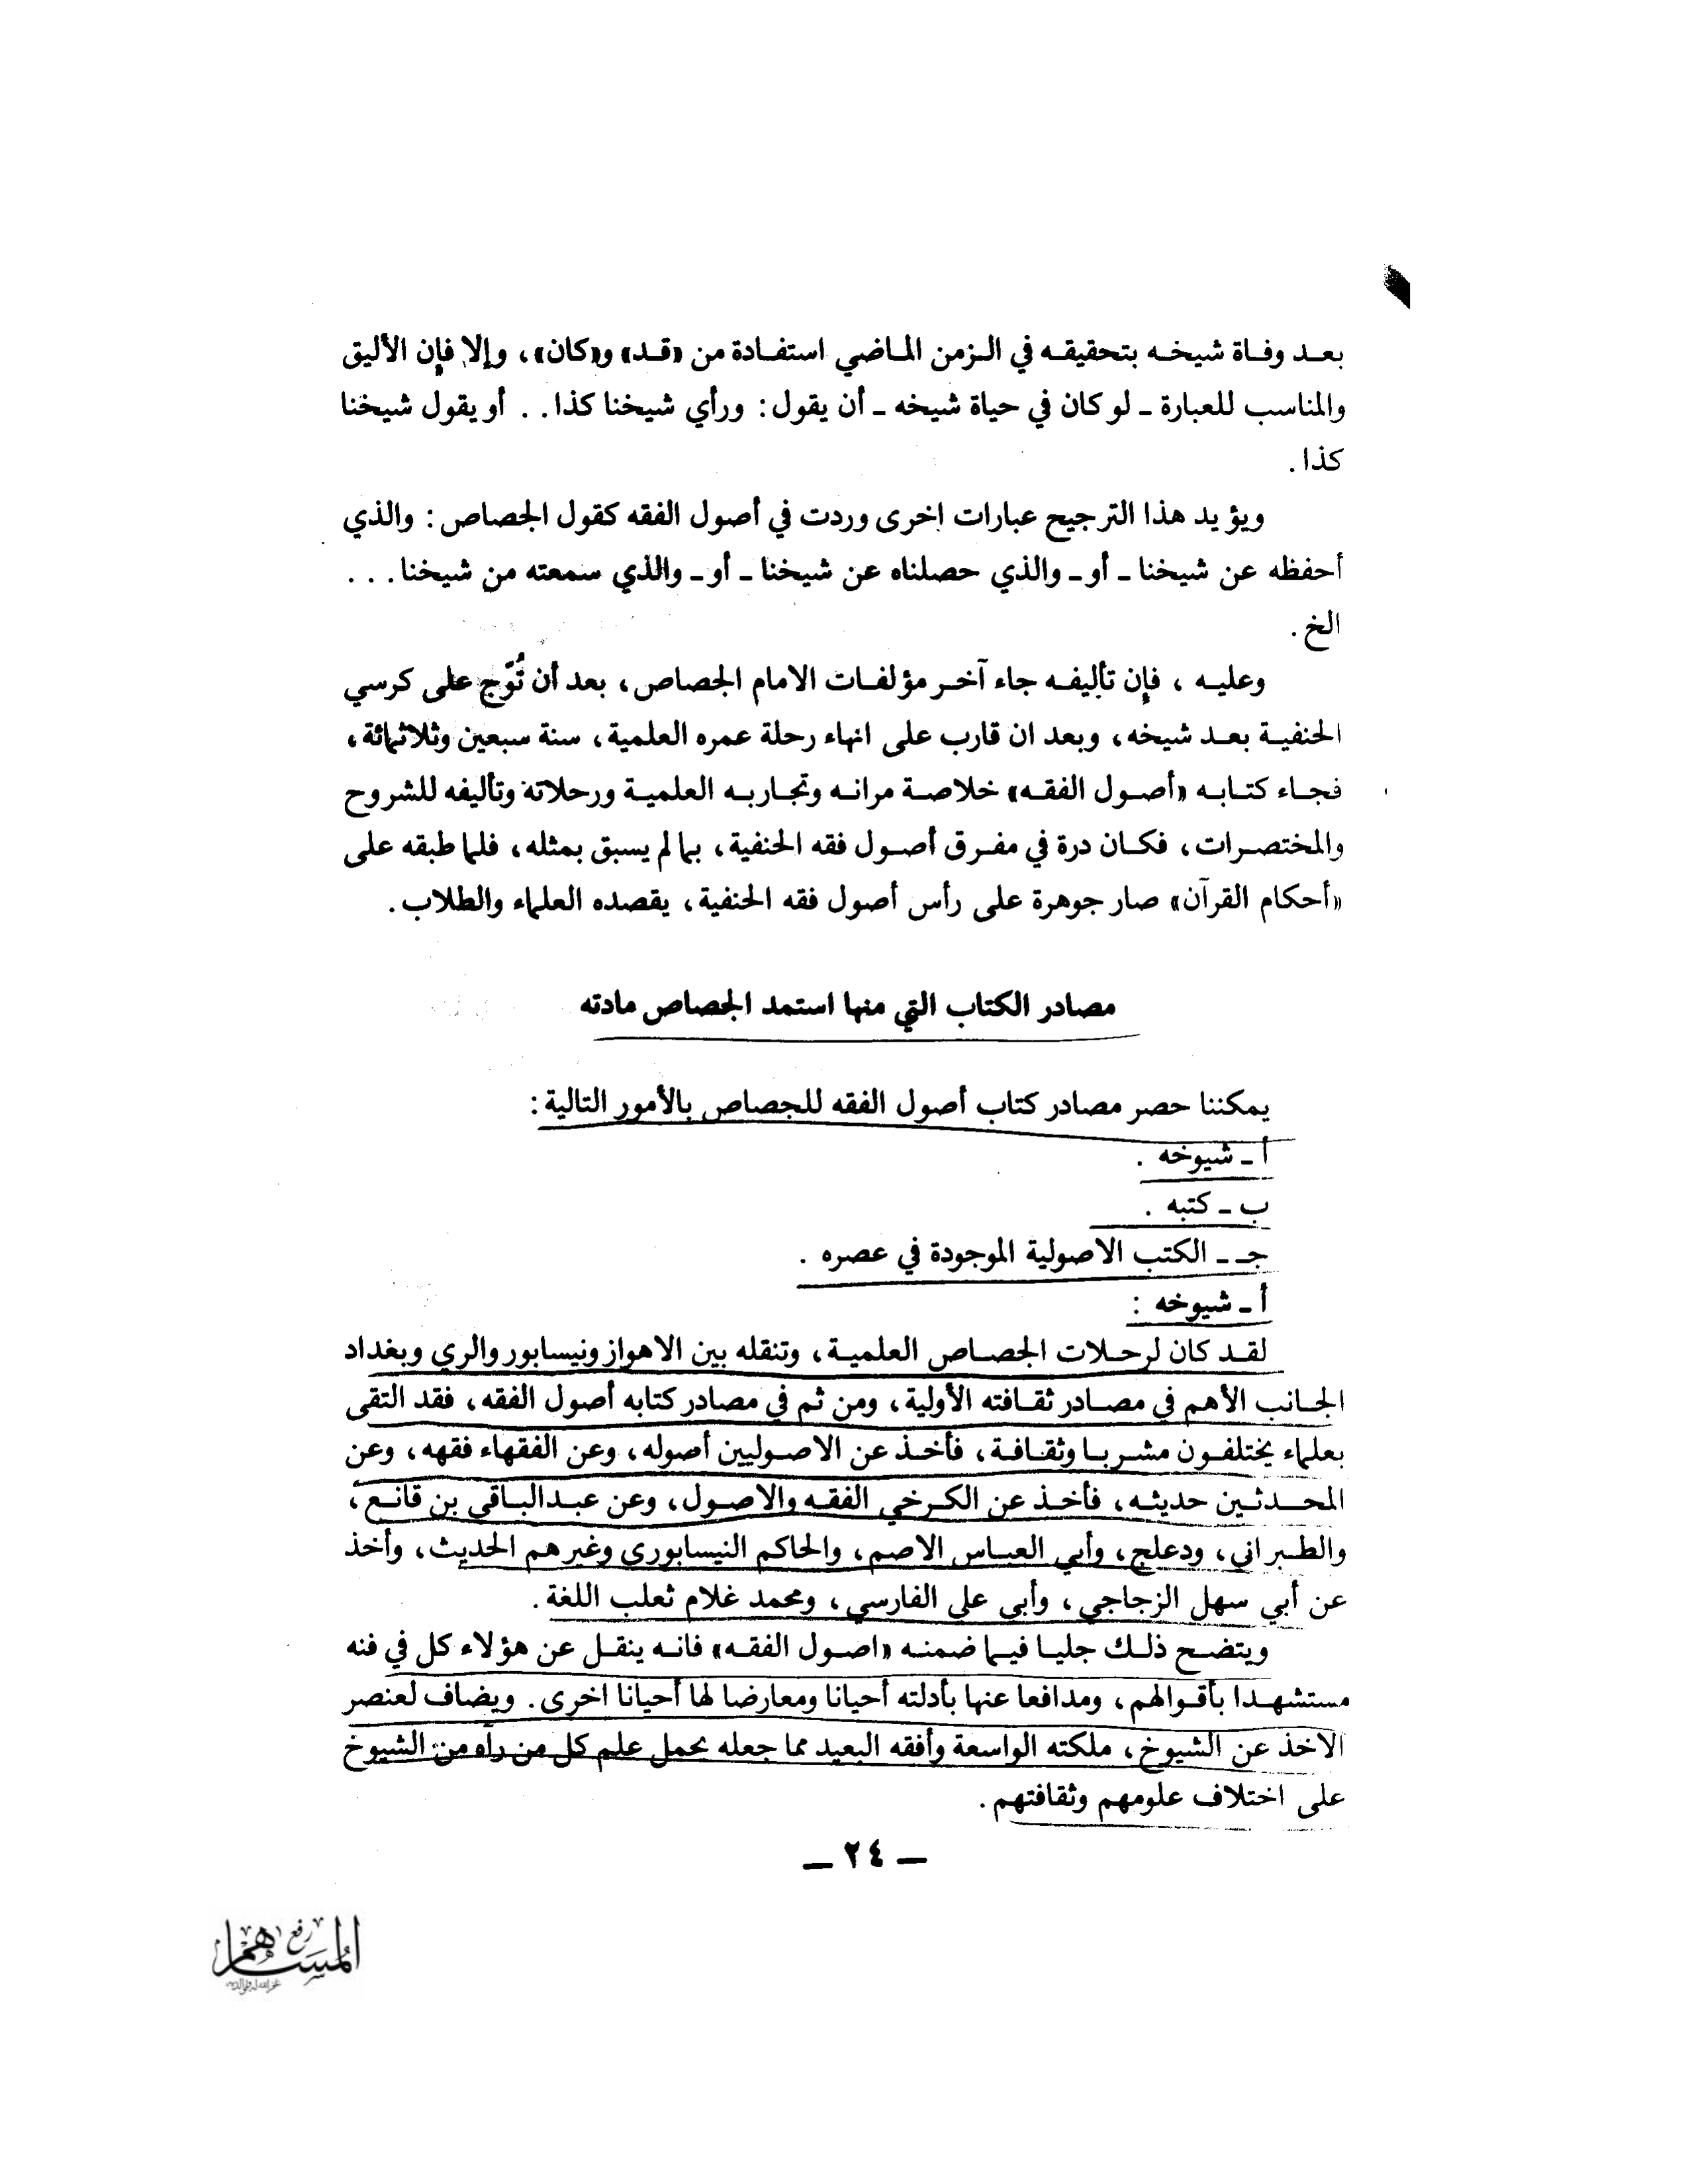 بعد وفاة شيخه بتحقيقه في الزمن الماضي استفادة من «قد» و«كان»، وإلا فإن الأليق
والمناسب للعبارة ـ لو كان في حياة شيخه ـ أن يقول: ورأي شيخنا كذا . . أو يقول شيخنا
كذا .
ويؤيد هذا الترجيح عبارات اخرى وردت في أصول الفقه كقول الجصاص: والذي
أحفظه عن شيخنا ـ أو ـ والذي حصلناه عن شيخنا ـ أو ـ والذي سمعته من شيخنا . . .
الخ .
وعليه ، فإن تأليفه جاء آخر مؤلفات الامام الجصاص، بعد أن تُوّج على كرسي
الحنفية بعد شيخه، وبعد ان قارب على انهاء رحلة عمره العلمية، سنة سبعين وثلاثمائة،
فجاء كتابه «أصول الفقه» خلاصة مرانه وتجاربه العلمية ورحلاته وتأليفه للشروح
والمختصرات، فكان درة في مفرق أصول فقه الحنفية، بما لم يسبق بمثله، فلما طبقه على
«أحكام القرآن» صار جوهرة على رأس أصول فقه الحنفية، يقصده العلماء والطلاب.
مصادر الكتاب التي منها استمد الجصاص مادته
يمكننا حصر مصادر كتاب أصول الفقه للجصاص بالأمور التالية:
أ ـ شيوخه .
ب ـ كتبه .
جـ ـ الكتب الاصولية الموجودة في عصره .
أ ـ شيوخه :
لقد كان لرحلات الجصاص العلمية، وتنقله بين الاهواز ونيسابور والري وبغداد
الجانب الأهم في مصادر ثقافته الأولية، ومن ثم في مصادر كتابه أصول الفقه، فقد التقى
بعلماء يختلفون مشربا وثقافة، فأخذ عن الاصوليين أصوله، وعن الفقهاء فقهه، وعن
المحدثين حديثه، فأخذ عن الكرخي الفقه والاصول، وعن عبدالباقي بن قانع،
والطبراني، ودعلج، وأبي العباس الاصم، والحاكم النيسابوري وغيرهم الحديث، وأخذ
عن أبي سهل الزجاجي، وأبى علي الفارسي، ومحمد غلام ثعلب اللغة.
ويتضح ذلك جليا فيما ضمنه «اصول الفقه» فانه ينقل عن هؤلاء كل في فنه
مستشهدا بأقوالهم، ومدافعا عنها بأدلته أحيانا ومعارضا لها أحيانا اخرى. ويضاف لعنصر
الاخذ عن الشيوخ، ملكته الواسعة وأفقه البعيد مما جعله يحمل علم كل من رآه من الشيوخ
على اختلاف علومهم وثقافتهم.
ـ ٢٤ ـ
رفع
المساهم